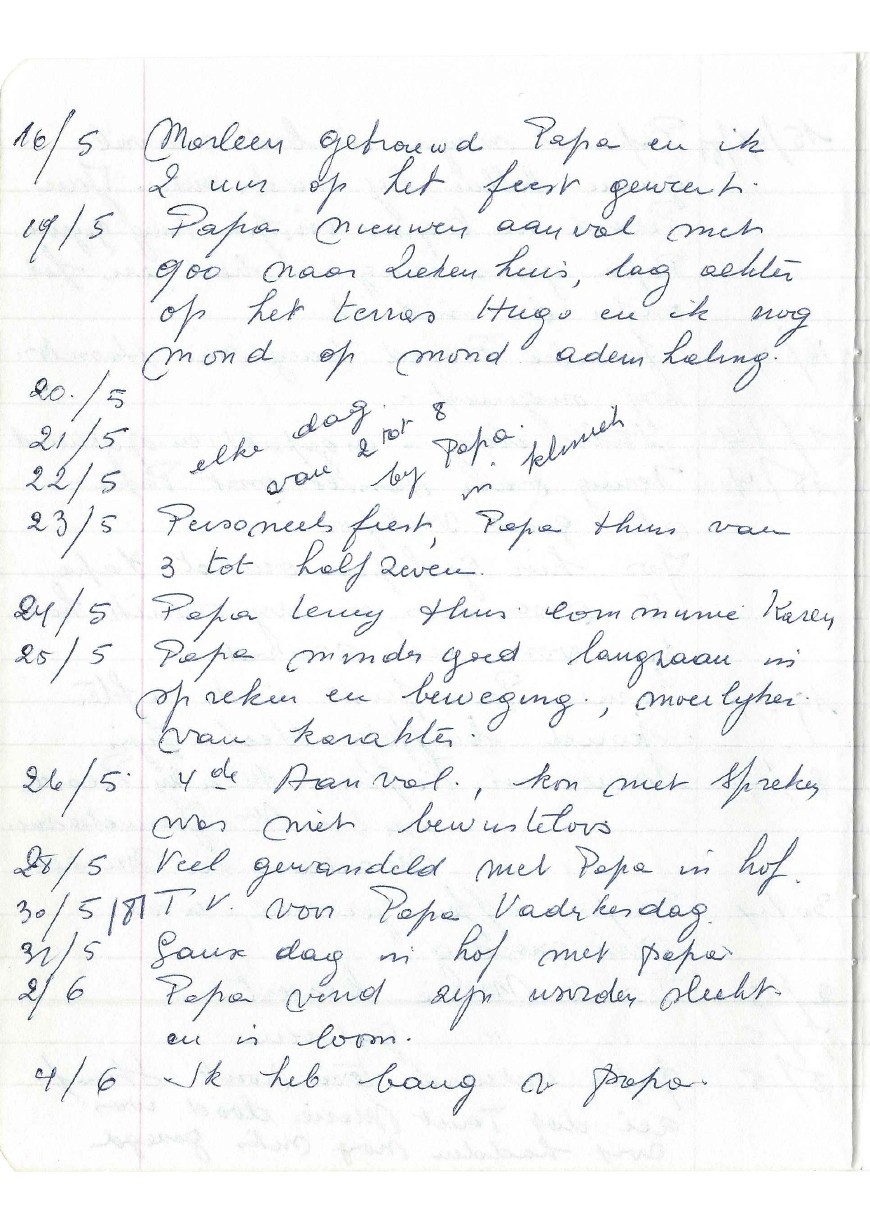 16/5 Marleen getrouwd Papa en ik
2 uur op het feest geweest.
19/5 Papa nieuwen aanval met
900 naar Ziekenhuis, lag achter
op het terras Hugo en ik nog
mond op mond ademhaling.
20./5
21/5 elke dag.
22/5 van 2 tot 8
by Papa.
in kliniek
23/5 Personeelsfeest, Papa thuis van
3 tot half zeven.
24/5 Papa terug thuis communie Karen
25/5 Papa minder goed langzaam in
spreken en beweging., moeilyker
van karakter.
26/5. 4de Aanval., kon niet spreken
was niet bewusteloos
28/5 Veel gewandeld met Papa in hof.
30/5/81 T.V. voor Papa Vaderkesdag.
31/5 Ganx dag in hof met papa
2/6 Papa vind zijn woorden slecht
en is loom.
4/6 Ik heb bang v papa.